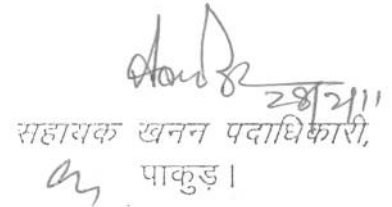 28/2/11
सहायक खनन पदाधिकारी,
पाकुड़।